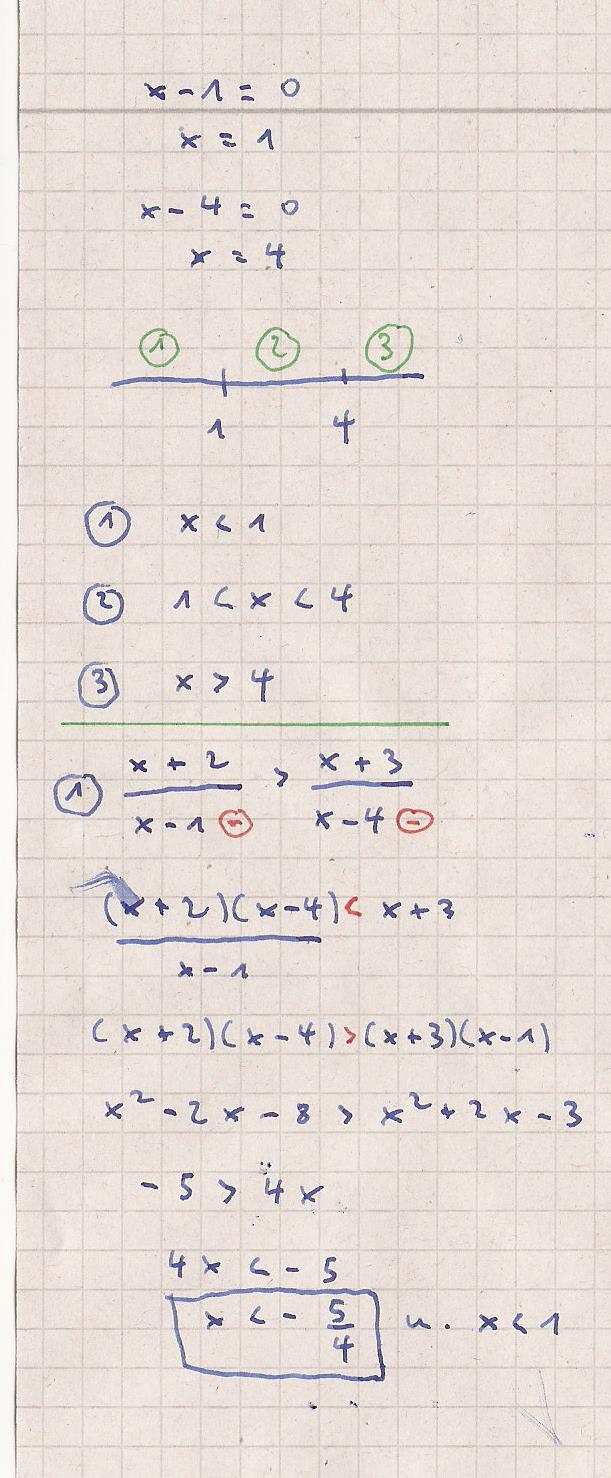 x - 1 = 0
x = 1
x - 4 = 0
x = 4
① ② ③
1 4
① x < 1
② 1 < x < 4
③ x > 4
① x + 2 > x + 3
x - 1 ⊖ x - 4 ⊖
(x + 2)(x - 4) < x + 3
x - 1
(x + 2)(x - 4) > (x + 3)(x - 1)
x² - 2x - 8 > x² + 2x - 3
- 5 > 4x
4x < - 5
x < - 5/4 u. x < 1